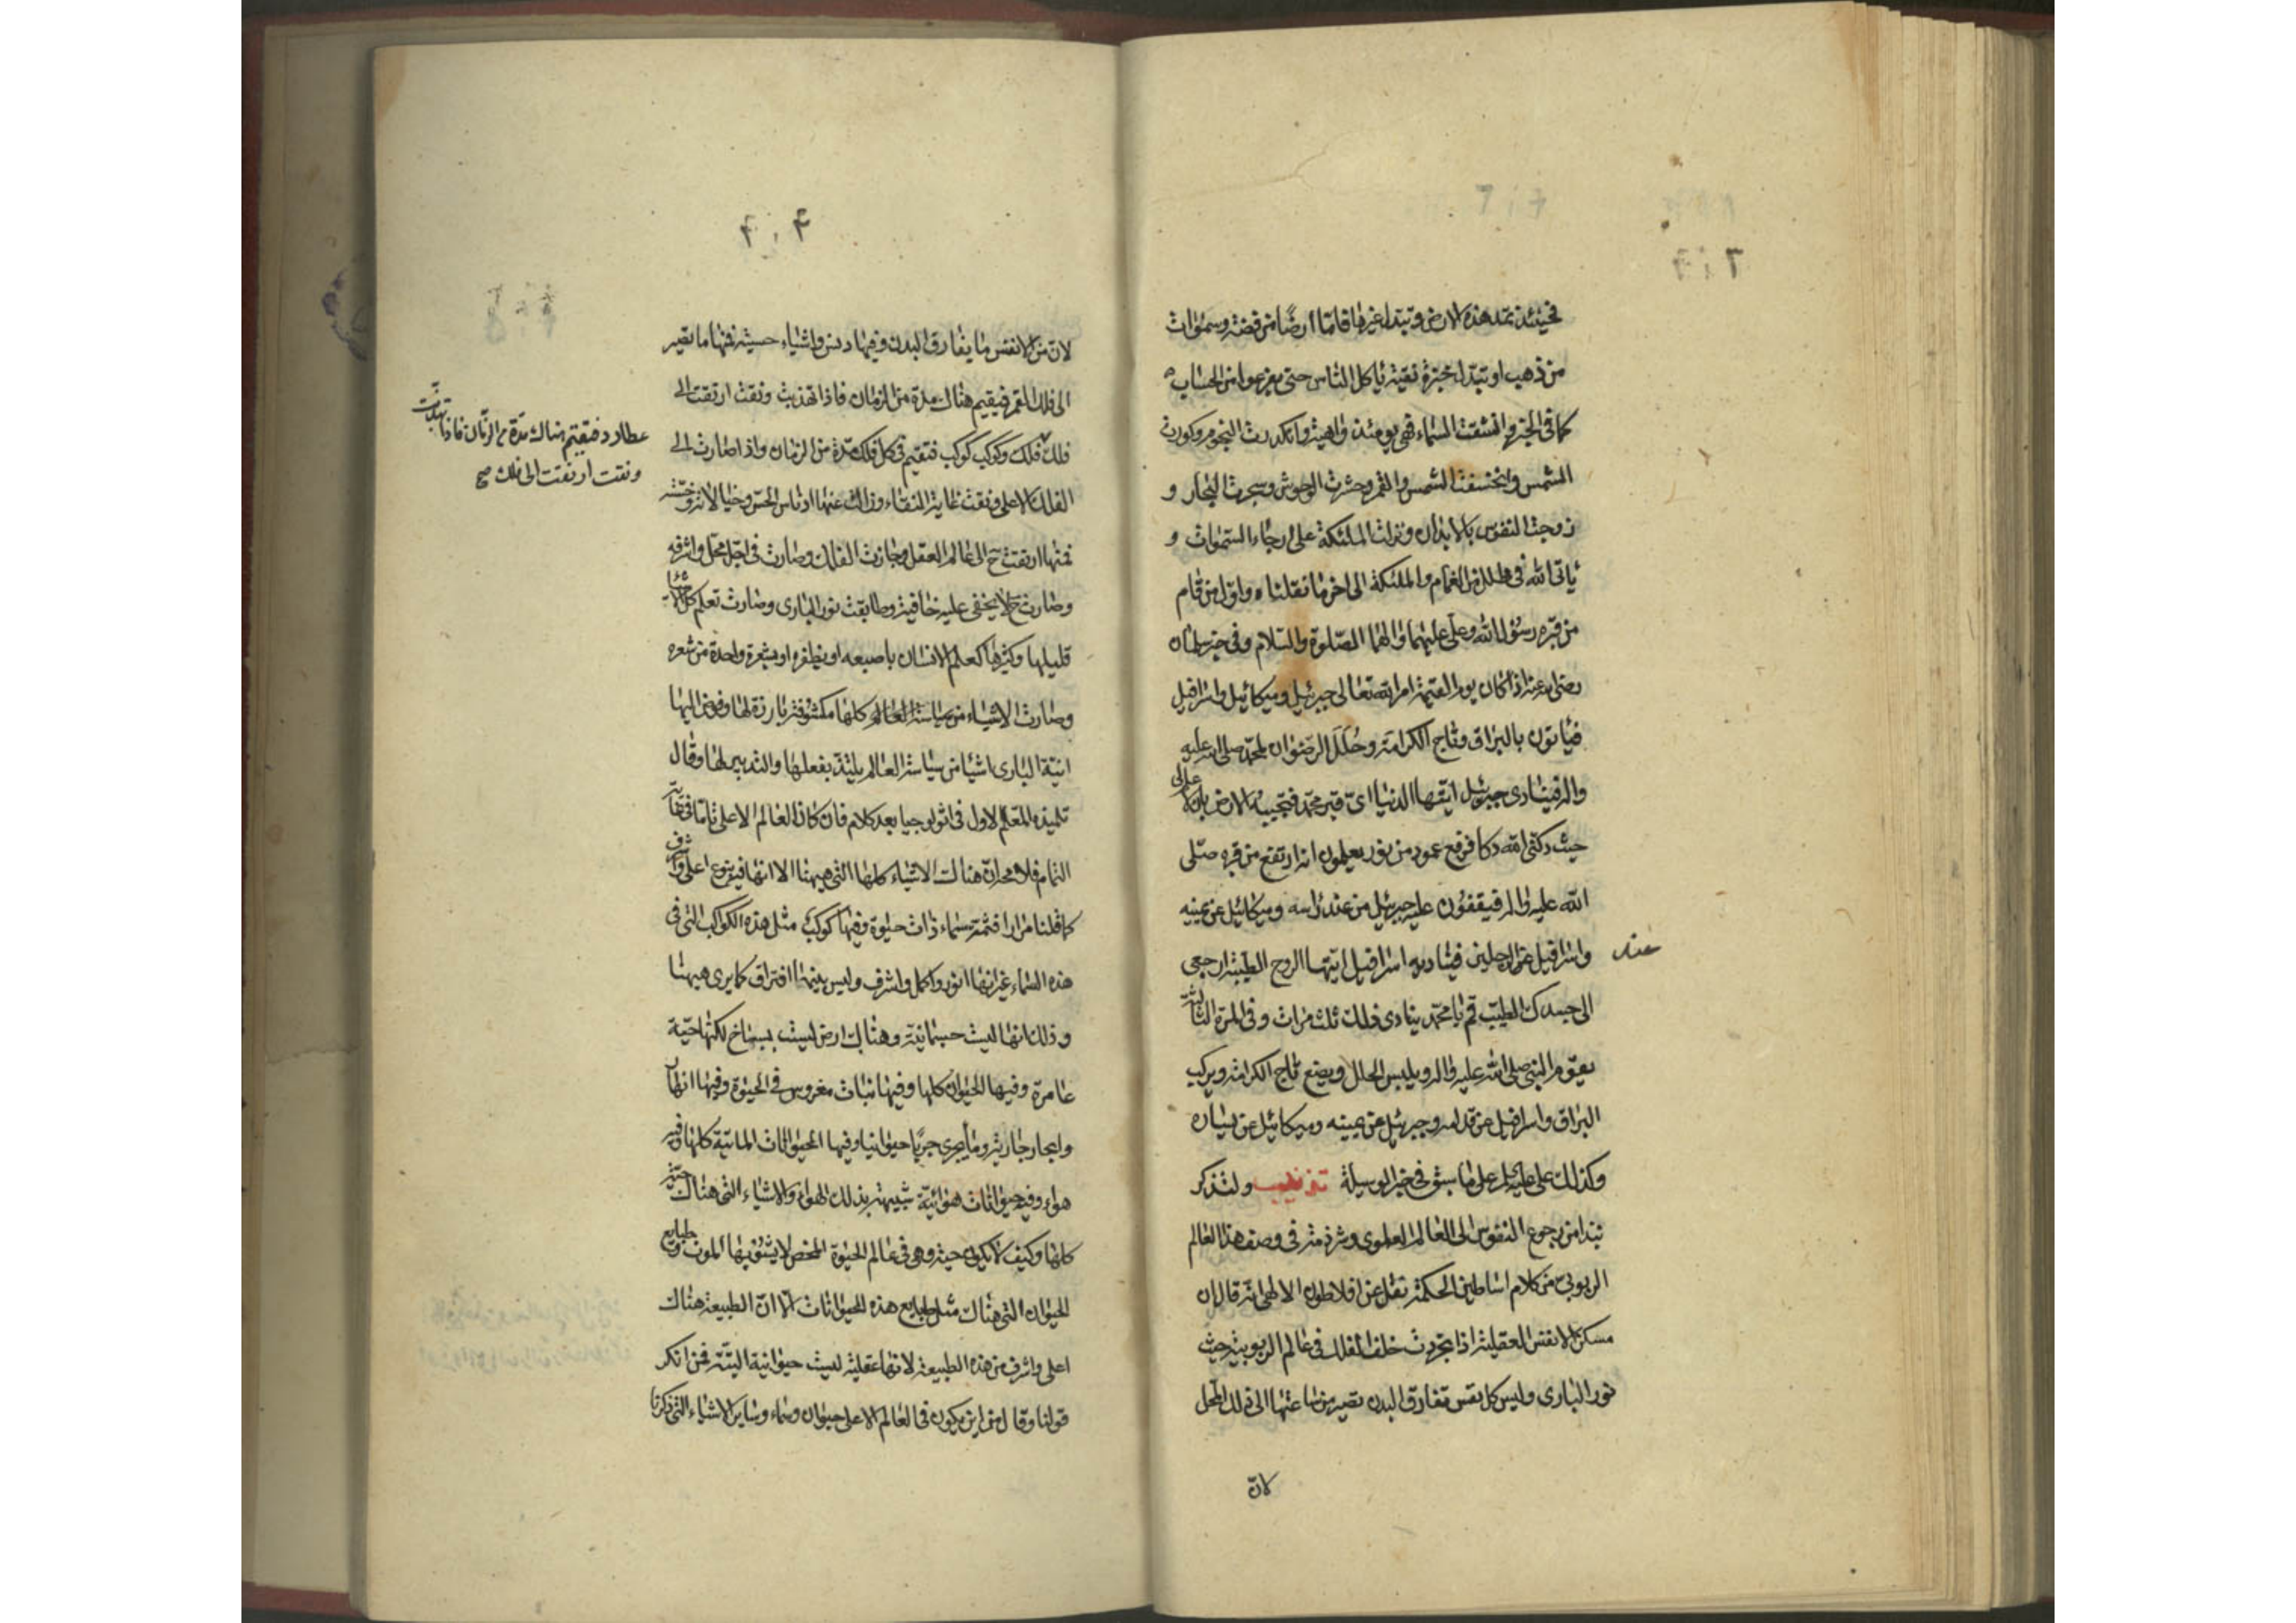 فحينئذ تمد هذه الارض وتبدل غيرها قاما ارضًا من فضة وسموات
من ذهب او تبدل خبزة نقية ياكل الناس حتى يفرغوا من الحساب
كما فى الخبر وانشقت السماء فهى يومئذ واهية وانكدرت النجوم وكورت
الشمس وانخسفت الشمس والقمر وحشرت الوحوش وسجرت البحار و
زوجت النفوس بالابدان ونزلت الملئكة على ارجاء السموات و
ياتى الله فى ظلل من الغمام والملئكة الى اخر ما نقلناه واول من قام
من قبره رسول الله وعلى عليهما والهما الصلوة والسلام وفى خبر سلمان
رضى الله عنه اذا كان يوم القيمة امر الله تعالى جبرئيل وميكائيل واسرافيل
فياتون بالبراق وتاج الكرامة وحُلَل الرضوان لمحمد صلى الله عليه
واله فينادى جبرئيل ايتها الدنيا اى قبر محمد فتجيب الارض بان
حيث دكنى الله دكا فرفع عمود من نور يعلمون انه ارتفع من قبره صلى
الله عليه واله فيقفون عليه جبرئيل من عند راسه وميكائيل عن يمينه
واسرافيل عن الرجلين فيناديه اسرافيل ايتها الروح الطيبة ارجعى
عند
الى جسدك الطيب قم يا محمد ينادى ذلك ثلث مرات وفى المرة الثالثة
يقوم النبى صلى الله عليه واله ويلبس الحلل ويضع تاج الكرامة ويركب
البراق واسرافيل عن قدامه وجبرئيل عن يمينه وميكائيل عن يساره
وكذلك على عليه السلام على ما سبق فى خبر الوسيلة تذنيب ولنذكر
نبذا من رجوع النفوس الى العالم العلوى وشرذمة فى وصف هذا العالم
الربوبى من كلام اساطين الحكمة نقل عن افلاطون الالهى انه قال ان
مسكن الانفس العقلية اذا تجردت خلف الفلك فى عالم الربوبية حيث
نور البارى وليس كل نفس تفارق البدن تصير من ساعتها الى ذلك المحل
لان
لان من الانفس ما يفارق البدن وفيها دنس واشياء حسية فمنها ما تصير
الى فلك القمر فيقيم هناك مدة من الزمان فاذا تهذبت ونقت ارتقت الى
عطارد فتقيم هناك مدة من الزمان فاذا تهذبت
ونقت ارتقت الى فلك صح
فلك فلك وكوكب كوكب فتقيم فى كل فلك مدة من الزمان واذا صارت الى
الفلك الاعلى ونقت غاية النقاء وزالت عنها ادناس الحس وخيالاته وخسته
فمنها ارتقت ح الى عالم العقل وجازت الفلك وصارت فى اجل محل واشرفه
وصارت ح لا يخفى عليه خافية وطابقت نور البارى وصارت تعلم كل الاشياء
قليلها وكثيرها كعلم الانسان باصبعه او بظفره او بشعرة واحدة من شعره
وصارت الاشياء من سياسة العالم كلها مكشوفة بارزة لها وفوض اليها
انية البارى اشيا من سياسة العالم يلتذ بفعلها والتدبير لها وقال
تلميذه المعلم الاول فى اثولوجيا بعد كلام فان كان العالم الاعلى تاما فى غاية
التمام فلا محالة هناك الاشياء كلها التى هيهنا الا انها فيه بنوع اعلى واشرف
كما قلنا مرارا فثمة سماء ذات حيوة وفيها كوكب مثل هذه الكواكب التى فى
هذه السماء غير انها انور واكمل واشرف وليس بينهما افتراق كما يرى هيهنا
وذلك انها ليست جسمانية وهناك ارض ليست بسباخ لكنها حية
عامرة وفيها الحيوان كلها وفيها نبات مغروس فى الحيوة وفيها انهار
وابحار جارية وما يجرى جريا حيوانيا وفيها الحيوانات المائية كلها وفيه
هواء وفيه حيوانات هوائية شبيهة بذلك الهواء والاشياء التى هناك حية
كلها وكيف لا يكون حية وهى فى عالم الحيوة المحض لا يشوبها الموت وطبايع
الحيوان التى هناك مثل طبايع هذه الحيوانات الا ان الطبيعة هناك
اعلى واشرف من هذه الطبيعة لانها عقلية ليست حيوانية البتة فمن انكر
قولنا وقال من اين يكون فى العالم الاعلى حيوان وسماء وساير الاشياء التى ذكرنا